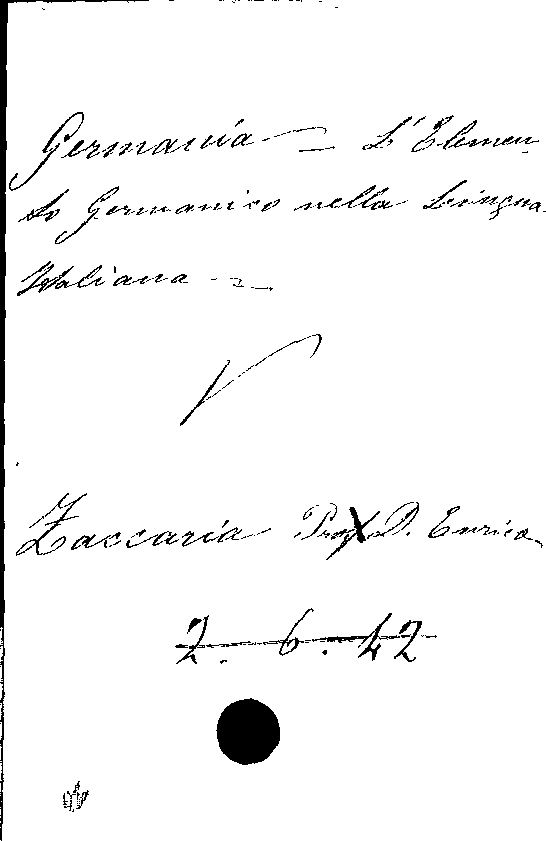 Germania — L'Elemen-
to Germanico nella Lingua
Italiana —
Zaccaria Prof. D. Enrico
2. 6. 42